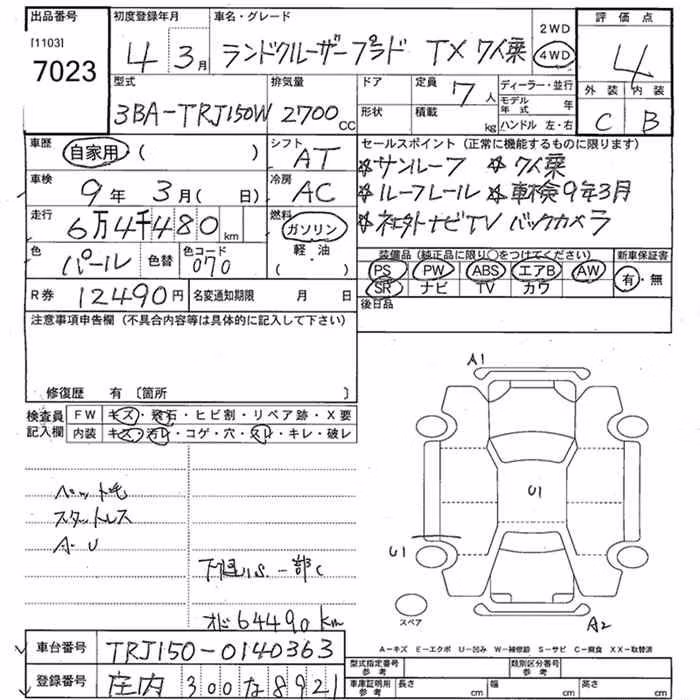 出品番号 初度登録年月 車名・グレード 評価点
[1103] 7023 4年3月 ランドクルーザープラド TX 7人乗 2WD 4WD 4
型式 排気量 ドア 定員 7人 ディーラー・並行 外装 内装
3BA-TRJ150W 2700cc 形状 積載 kg モデル年式 年 ハンドル 左・右 C B
車歴 自家用 ( ) シフト AT セールスポイント (正常に機能するものに限ります)
☆サンルーフ ☆7人乗
車検 9年3月( 日) 冷房 AC ☆ルーフレール ☆車検9年3月
走行 6万4千480km 燃料 ガソリン 軽・油 ( ・ ) ☆社外ナビTV バックカメラ
色 パール 色替 色コード 070 装備品 (純正品に限り○をつけてください) 新車保証書
PS PW ABS エアB AW 有・無
R券 12490円 名変通知期限 月 日 SR ナビ TV カワ
後日品
注意事項申告欄 (不具合内容等は具体的に記入して下さい)
修復歴 有 [箇所 ]
検査員記入欄 FW キズ・飛石・ヒビ割・リペア跡・X要
内装 キズ・汚レ・コゲ・穴・スレ・キレ・破レ
A1
ペット毛
U1
スタットレス
A・U
U1
下廻りS.一部C
スペア
A2
オド64490km
A-キズ E-エクボ U-凹み W-補修跡 S-サビ C-腐食 XX-取替済
車台番号 TRJ150-0140363 型式指定番号 参考 類別区分番号 参考
登録番号 庄内 300な8921 車庫証明用 参考 長さ cm 幅 cm 高さ cm